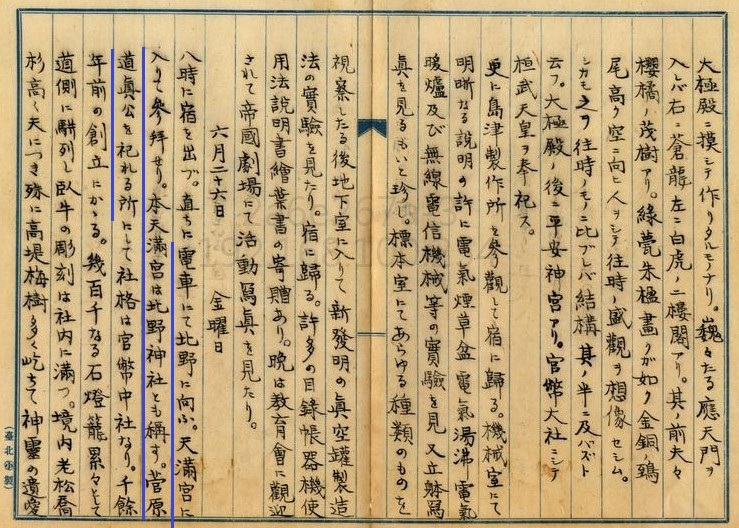 大極殿ニ摸シテ作リタルモノナリ。巍々たる應天門ヲ
入レバ右ニ蒼龍左ニ白虎ノ二樓閣アリ。其ノ前夫々
櫻橘ノ茂樹アリ。綠甍朱楹畫クガ如ク金銅ノ鵄
尾高ク空ニ向ヒ人ヲシテ往時ノ盛觀ヲ想像セシム。
シカモ之ヲ往時ノモノニ比ブレバ結構其ノ半ニ及バズト
云フ。大極殿ノ後ニ平安神宮アリ。官幣大社ニシテ
桓武天皇ヲ奉祀ス。
更に島津製作所を參觀して宿に歸る。機械室にて
明晰なる說明の許に電氣煙草盆電氣湯沸電氣
暖爐及び無線電信機械等の實驗を見又立躰寫
眞を見るもいと珍し。標本室にてあらゆる種類のものを
視察したる後地下室に入りて新發明の眞空罐製造
法の實驗を見たり。宿に歸る。許多の目錄帳器機使
用法說明書繪葉書の寄贈あり。晚は教育會に觀迎
されて帝國劇場にて活動寫眞を見たり。
六月二十六日 金曜日
八時に宿を出づ。直ちに電車にて北野に向ふ。天滿宮に
入りて參拜せり。本天滿宮は北野神社とも稱す。菅原
道眞公を祀れる所にして社格は官幣中社なり。千餘
年前の創立にかゝる。幾百千なる石燈籠累々として
道側に駢列し臥牛の彫刻は社內に滿つ。境內老松喬
杉高く天につき殊に高堤梅樹多く屹ちて神靈の遺愛
(臺北 製)